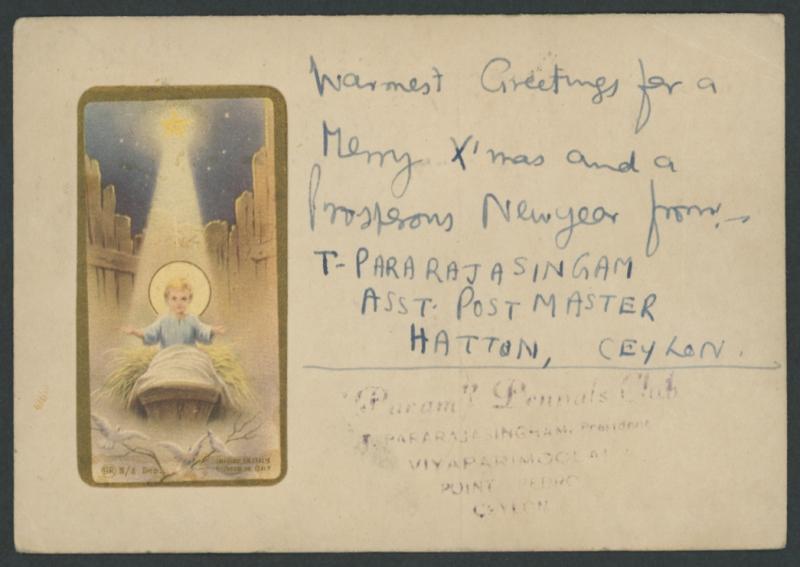 Warmest Greetings for a
Merry X'mas and a
Prosperous Newyear from:-
T- PARARAJASINGAM
ASST. POST MASTER
HATTON, CEYLON.
"Param" Pennals Club
T. PARARAJASINGHAM, President
VIYAPARIMOOLAI
POINT PEDRO
CEYLON
N/6 Dep.
ITALY